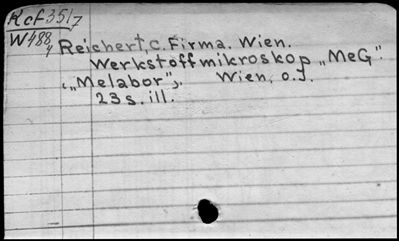 Kcf 351/7
W488
4
Reichert, C. Firma. Wien.
Werkstoffmikroskop „MeG".
(„Melabor"). Wien, o.J.
23 s. ill.